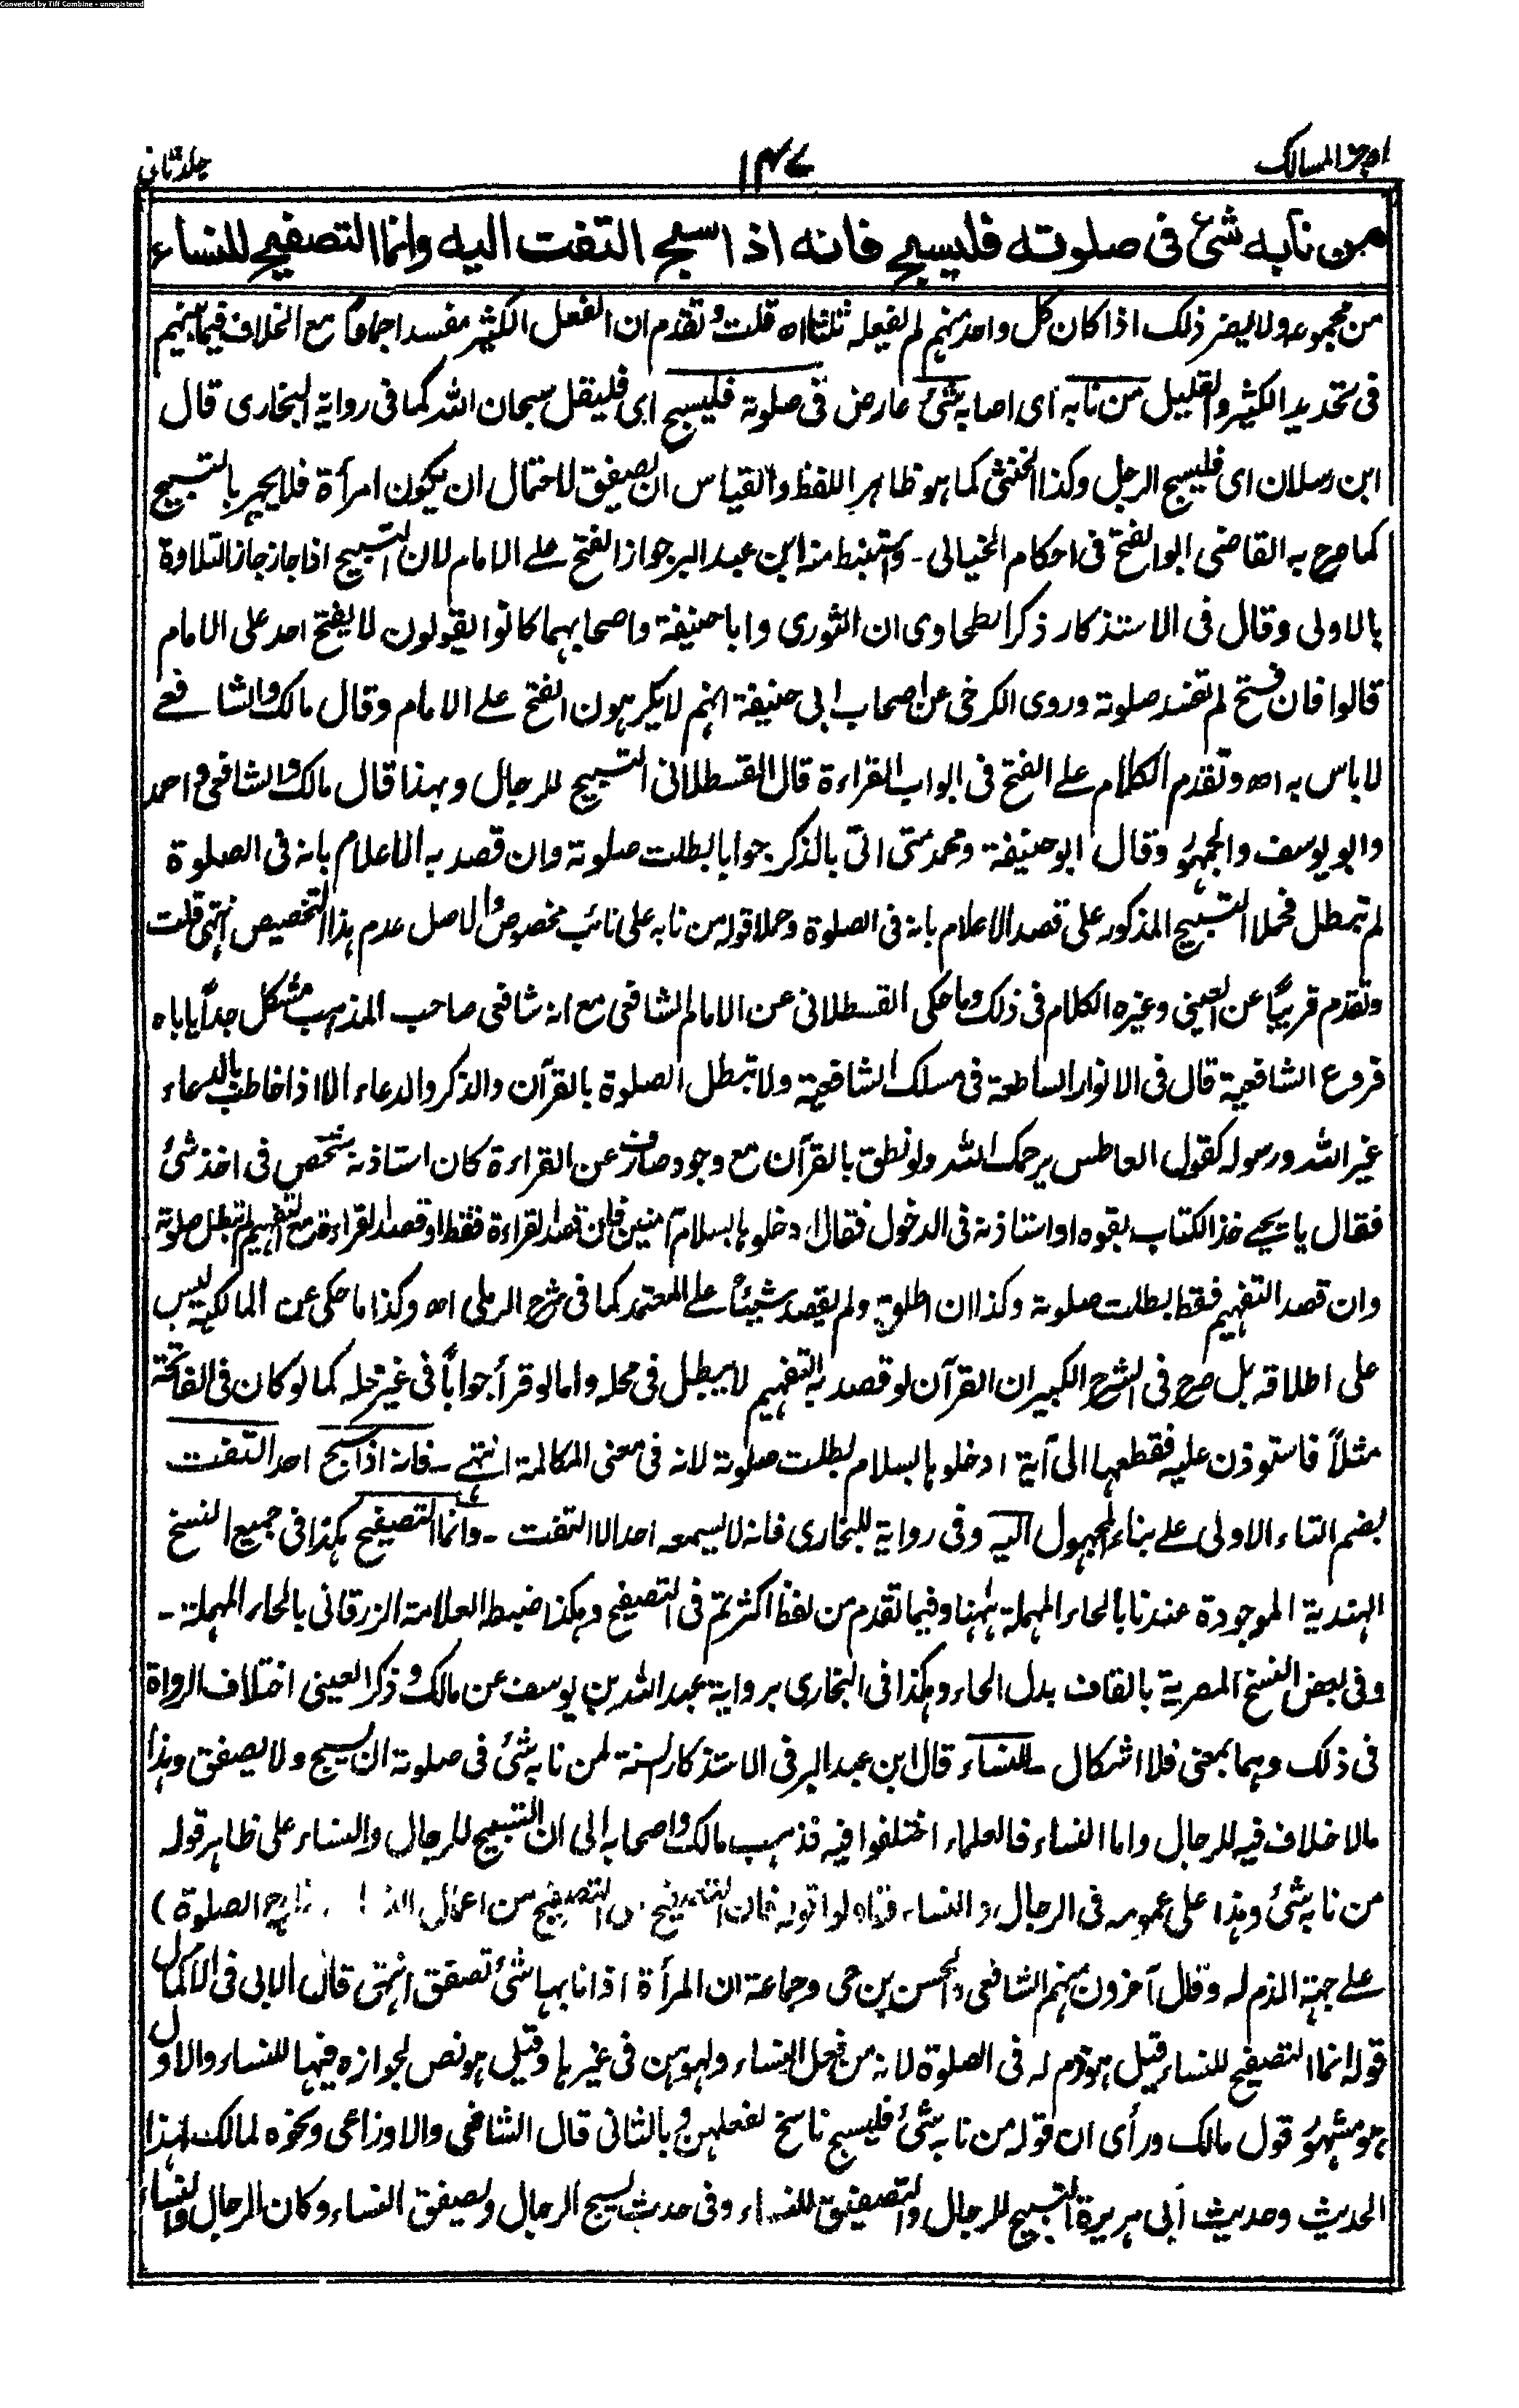 Converted by Tiff Combine - unregistered
اوجز المسالك
١٤٧
جلد ثانى
من نابه شئ فى صلوته فليسبح فانه اذا سبح التفت اليه وانما التصفيح للنساء
من مجموعه ولا يضر ذلك اذا كان كل واحد منهم لم يفعله ثلثا اه قلت وتقدم ان الفعل الكثير مفسد اجماعًا مع الخلاف فيما بينهم
فى تحديد الكثير والقليل من نابه اى اصابه شئ عارض فى صلوته فليسبح اى فليقل سبحان الله كما فى رواية البخارى قال
ابن رسلان اى فليسبح الرجل وكذا الخنثى كما هو ظاهر اللفظ والقياس ان يصفق لاحتمال ان يكون امرأة فلا يجهر بالتسبيح
كما صرح به القاضى ابو الفتح فى احكام الخيالى - واستنبط منه ابن عبد البر جواز الفتح على الامام لان التسبيح اذا جاز جاز التلاوة
بالاولى وقال فى الاستذكار ذكر الطحاوى ان الثورى وابا حنيفة واصحابهما كانوا يقولون لا يفتح احد على الامام
قالوا فان فتح لم تفسد صلوته وروى الكرخى عن اصحاب ابى حنيفة انهم لا يكرهون الفتح على الامام وقال مالك والشافعى
لا باس به اه وتقدم الكلام على الفتح فى ابواب القراءة قال القسطلانى التسبيح للرجال وبهذا قال مالك والشافعى واحمد
وابو يوسف والجمهور وقال ابو حنيفة ومحمد متى اتى بالذكر جوابا بطلت صلوته وان قصد به الاعلام بانه فى الصلوة
لم تبطل فحملا التسبيح المذكور على قصد الاعلام بانه فى الصلوة وحملا قوله من نابه على نائب مخصوص والاصل عدم هذا التخصيص انتهى قلت
وتقدم قريبًا عن العينى وغيره الكلام فى ذلك وما حكى القسطلانى عن الامام الشافعى مع انه شافعى صاحب المذهب مشكل جدًا ياباه
فروع الشافعية قال فى الانوار الساطعة فى مسلك الشافعية ولا تبطل الصلوة بالقرآن والذكر والدعاء الا اذا خاطب بالدعاء
غير الله ورسوله كقوله العاطس يرحمك الله ولو نطق بالقرآن مع وجود صارف عن القراءة كان استاذنه شخص فى اخذ شئ
فقال يا يحيى خذ الكتاب بقوه او استاذنه فى الدخول فقال ادخلوها بسلام آمنين فان قصد القراءة فقط او قصد القراءة مع التفهيم لم تبطل صلوته
وان قصد التفهيم فقط بطلت صلوته وكذا ان اطلق ولم يقصد شيئًا على المعتمد كما فى شرح الرملى اه وكذا ما حكى عن المالكية ليس
على اطلاقه بل صرح فى الشرح الكبير ان القرآن لو قصد به التفهيم لا يبطل فى محله واما لو قرأ جوابًا فى غير محله كما لو كان فى الفاتحة
مثلًا فاستوذن عليه فقطعها الى آية ادخلوها بسلام بطلت صلوته لانه فى معنى المكالمة انتهى - فانه اذا سبح احد التفت
بضم التاء الاولى على بناء المجهول اليه وفى رواية للبخارى فانه لا يسمعه احد الا التفت - وانما التصفيح هكذا فى جميع النسخ
الهندية الموجودة عندنا بالحاء المهملة ههنا وفيما تقدم من لفظ اكثرتم فى التصفيح وهكذا ضبطه العلامة الزرقانى بالحاء المهملة -
وفى بعض النسخ المصرية بالقاف بدل الحاء وهكذا فى البخارى برواية عبد الله بن يوسف عن مالك وذكر العينى اختلاف الرواة
فى ذلك وهما بمعنى فلا اشكال - للنساء قال ابن عبد البر فى الاستذكار السنة لمن نابه شئ فى صلوته ان يسبح ولا يصفق وهذا
مالا خلاف فيه للرجال واما النساء فالعلماء اختلفوا فيه فذهب مالك واصحابه الى ان التسبيح للرجال والنساء على ظاهر قوله
من نابه شئ وهذا على عمومه فى الرجال والنساء التصفيح من اعمال الصلوة)
على جهة الذم له وقال آخرون منهم الشافعى والحسن بن حى وجماعة ان المرأة اذا نابها شئ تصفق انتهى قال الابى فى الاكمال
قوله انما التصفيح للنساء قيل هو ذم له فى الصلوة لانه من فعل النساء ولهوهن فى غيرها وقيل هو نص لجوازه فيها للنساء والاول
هو مشهور قول مالك ورأى ان قوله من نابه شئ فليسبح ناسخ لفعلهن وبالثانى قال الشافعى والاوزاعى ونحوه لمالك لهذا
الحديث وحديث ابى هريرة التسبيح للرجال والتصفيق للنساء وفى حديث يسبح الرجال وليصفق النساء وكان الرجال والنساء